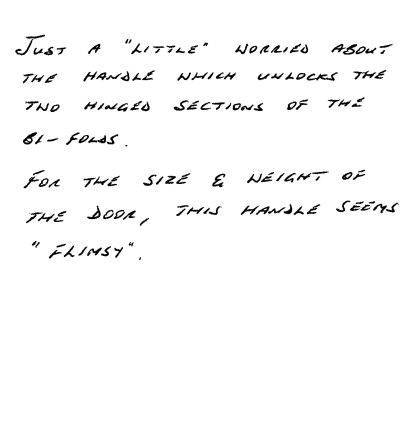 JUST A "LITTLE" WORRIED ABOUT
THE HANDLE WHICH UNLOCKS THE
TWO HINGED SECTIONS OF THE
BI-FOLDS.
FOR THE SIZE & WEIGHT OF
THE DOOR, THIS HANDLE SEEMS
"FLIMSY".